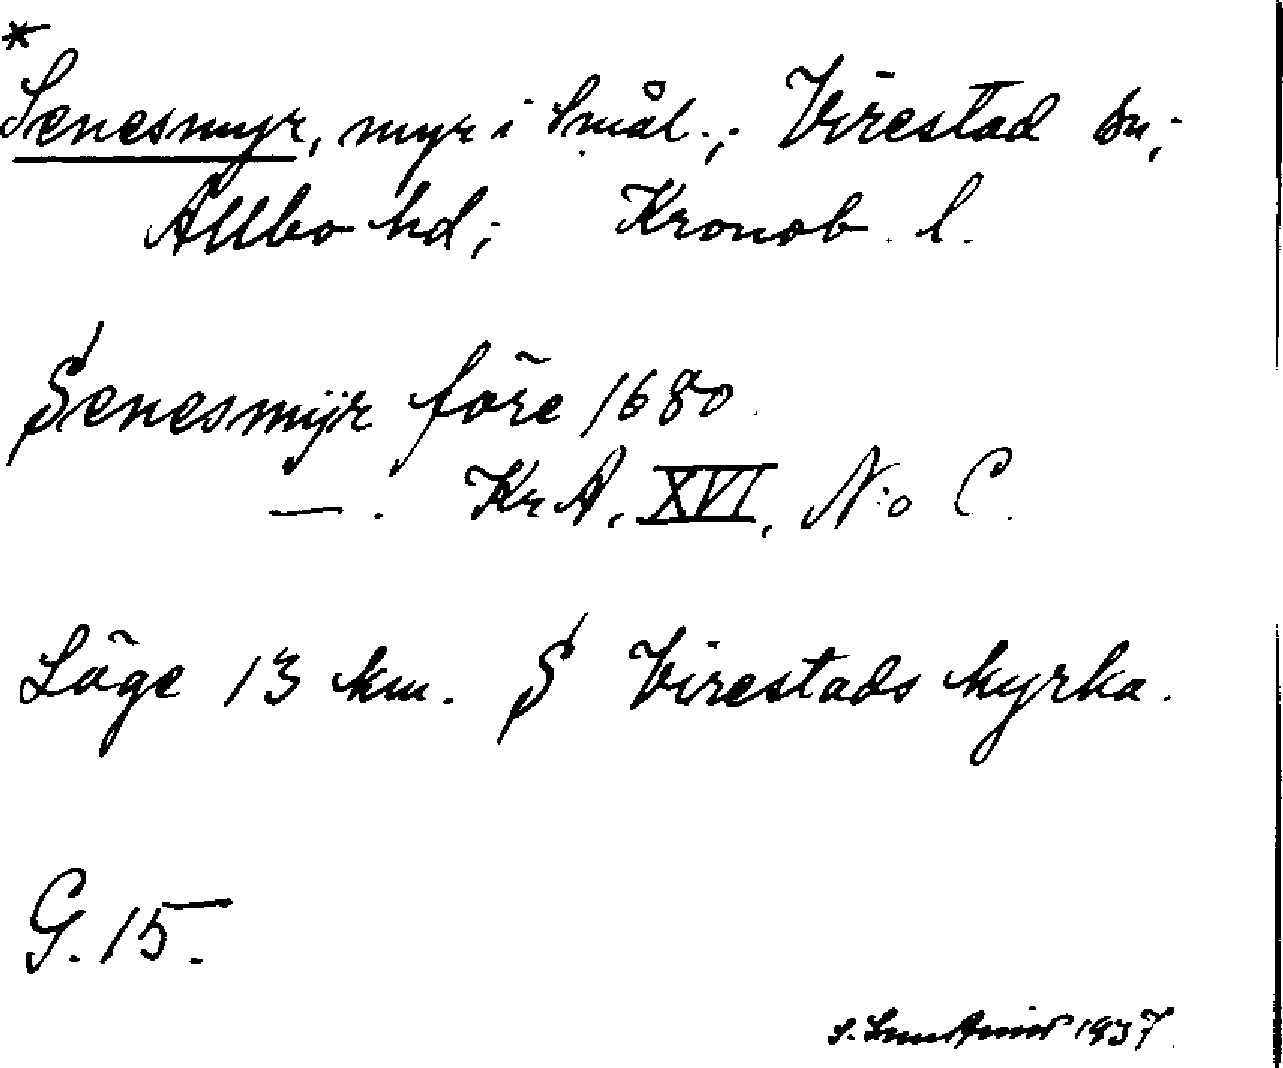 *
Senesmyr, myr i Smål.; Virestad sn,;
Allbo hd; Kronob. l.
Senesmÿr före 1680
—. KrA, XVI, N:o C.
Läge 13 km. S Virestads kyrka.
G. 15.
1937